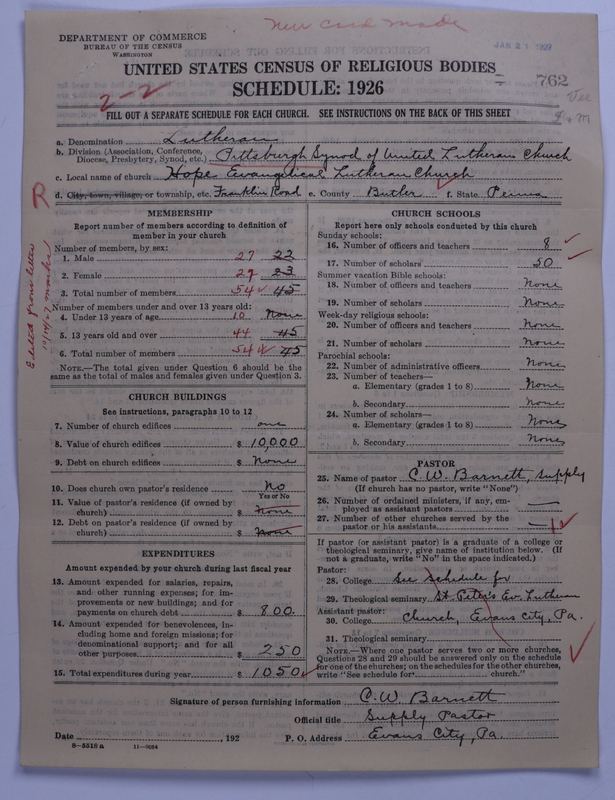 New Card Made
DEPARTMENT OF COMMERCE
BUREAU OF THE CENSUS
WASHINGTON
JAN 21 1927
UNITED STATES CENSUS OF RELIGIOUS BODIES
SCHEDULE: 1926
2-2
762
FILL OUT A SEPARATE SCHEDULE FOR EACH CHURCH. SEE INSTRUCTIONS ON THE BACK OF THIS SHEET
a. Denomination Lutheran
b. Division (Association, Conference, Diocese, Presbytery, Synod, etc.) Pittsburgh Synod of United Lutheran Church
c. Local name of church Hope Evangelical Lutheran Church
d. City, town, village, or township, etc. Franklin Road e. County Butler f. State Penna
R
MEMBERSHIP
Report number of members according to definition of
member in your church
Number of members, by sex:
1. Male 27 22
2. Female 27 23
3. Total number of members 54 45
Number of members under and over 13 years old:
4. Under 13 years of age 10 None
5. 13 years old and over 44 45
6. Total number of members 54 45
NOTE.—The total given under Question 6 should be the
same as the total of males and females given under Question 3.
CHURCH BUILDINGS
See instructions, paragraphs 10 to 12
7. Number of church edifices one
8. Value of church edifices $ 10,000
9. Debt on church edifices $ None
10. Does church own pastor's residence No
Yes or No
11. Value of pastor's residence (if owned by
church) $ None
12. Debt on pastor's residence (if owned by
church) $ None
EXPENDITURES
Amount expended by your church during last fiscal year
13. Amount expended for salaries, repairs,
and other running expenses; for im-
provements or new buildings; and for
payments on church debt $ 800.
14. Amount expended for benevolences, in-
cluding home and foreign missions; for
denominational support; and for all
other purposes $ 250
15. Total expenditures during year $ 1050
CHURCH SCHOOLS
Report here only schools conducted by this church
Sunday schools:
16. Number of officers and teachers 8
17. Number of scholars 50
Summer vacation Bible schools:
18. Number of officers and teachers None
19. Number of scholars None
Week-day religious schools:
20. Number of officers and teachers None
21. Number of scholars None
Parochial schools:
22. Number of administrative officers None
23. Number of teachers—
a. Elementary (grades 1 to 8) None
b. Secondary None
24. Number of scholars—
a. Elementary (grades 1 to 8) None
b. Secondary None
PASTOR
25. Name of pastor C. W. Barnett, Supply
(If church has no pastor, write "None")
26. Number of ordained ministers, if any, em-
ployed as assistant pastors
27. Number of other churches served by the
pastor or his assistants
If pastor (or assistant pastor) is a graduate of a college or
theological seminary, give name of institution below. (If
not a graduate, write "No" in the space indicated.)
Pastor:
28. College See Schedule for
29. Theological seminary St. Peter's Ev. Lutheran
Assistant pastor:
30. College Church, Evans City, Pa.
31. Theological seminary
NOTE.—Where one pastor serves two or more churches,
Questions 28 and 29 should be answered only on the schedule
for one of the churches; on the schedules for the other churches,
write "See schedule for church."
Signature of person furnishing information C. W. Barnett
Official title Supply Pastor
Date , 192 P. O. Address Evans City, Pa.
8-5518 a 11-9034